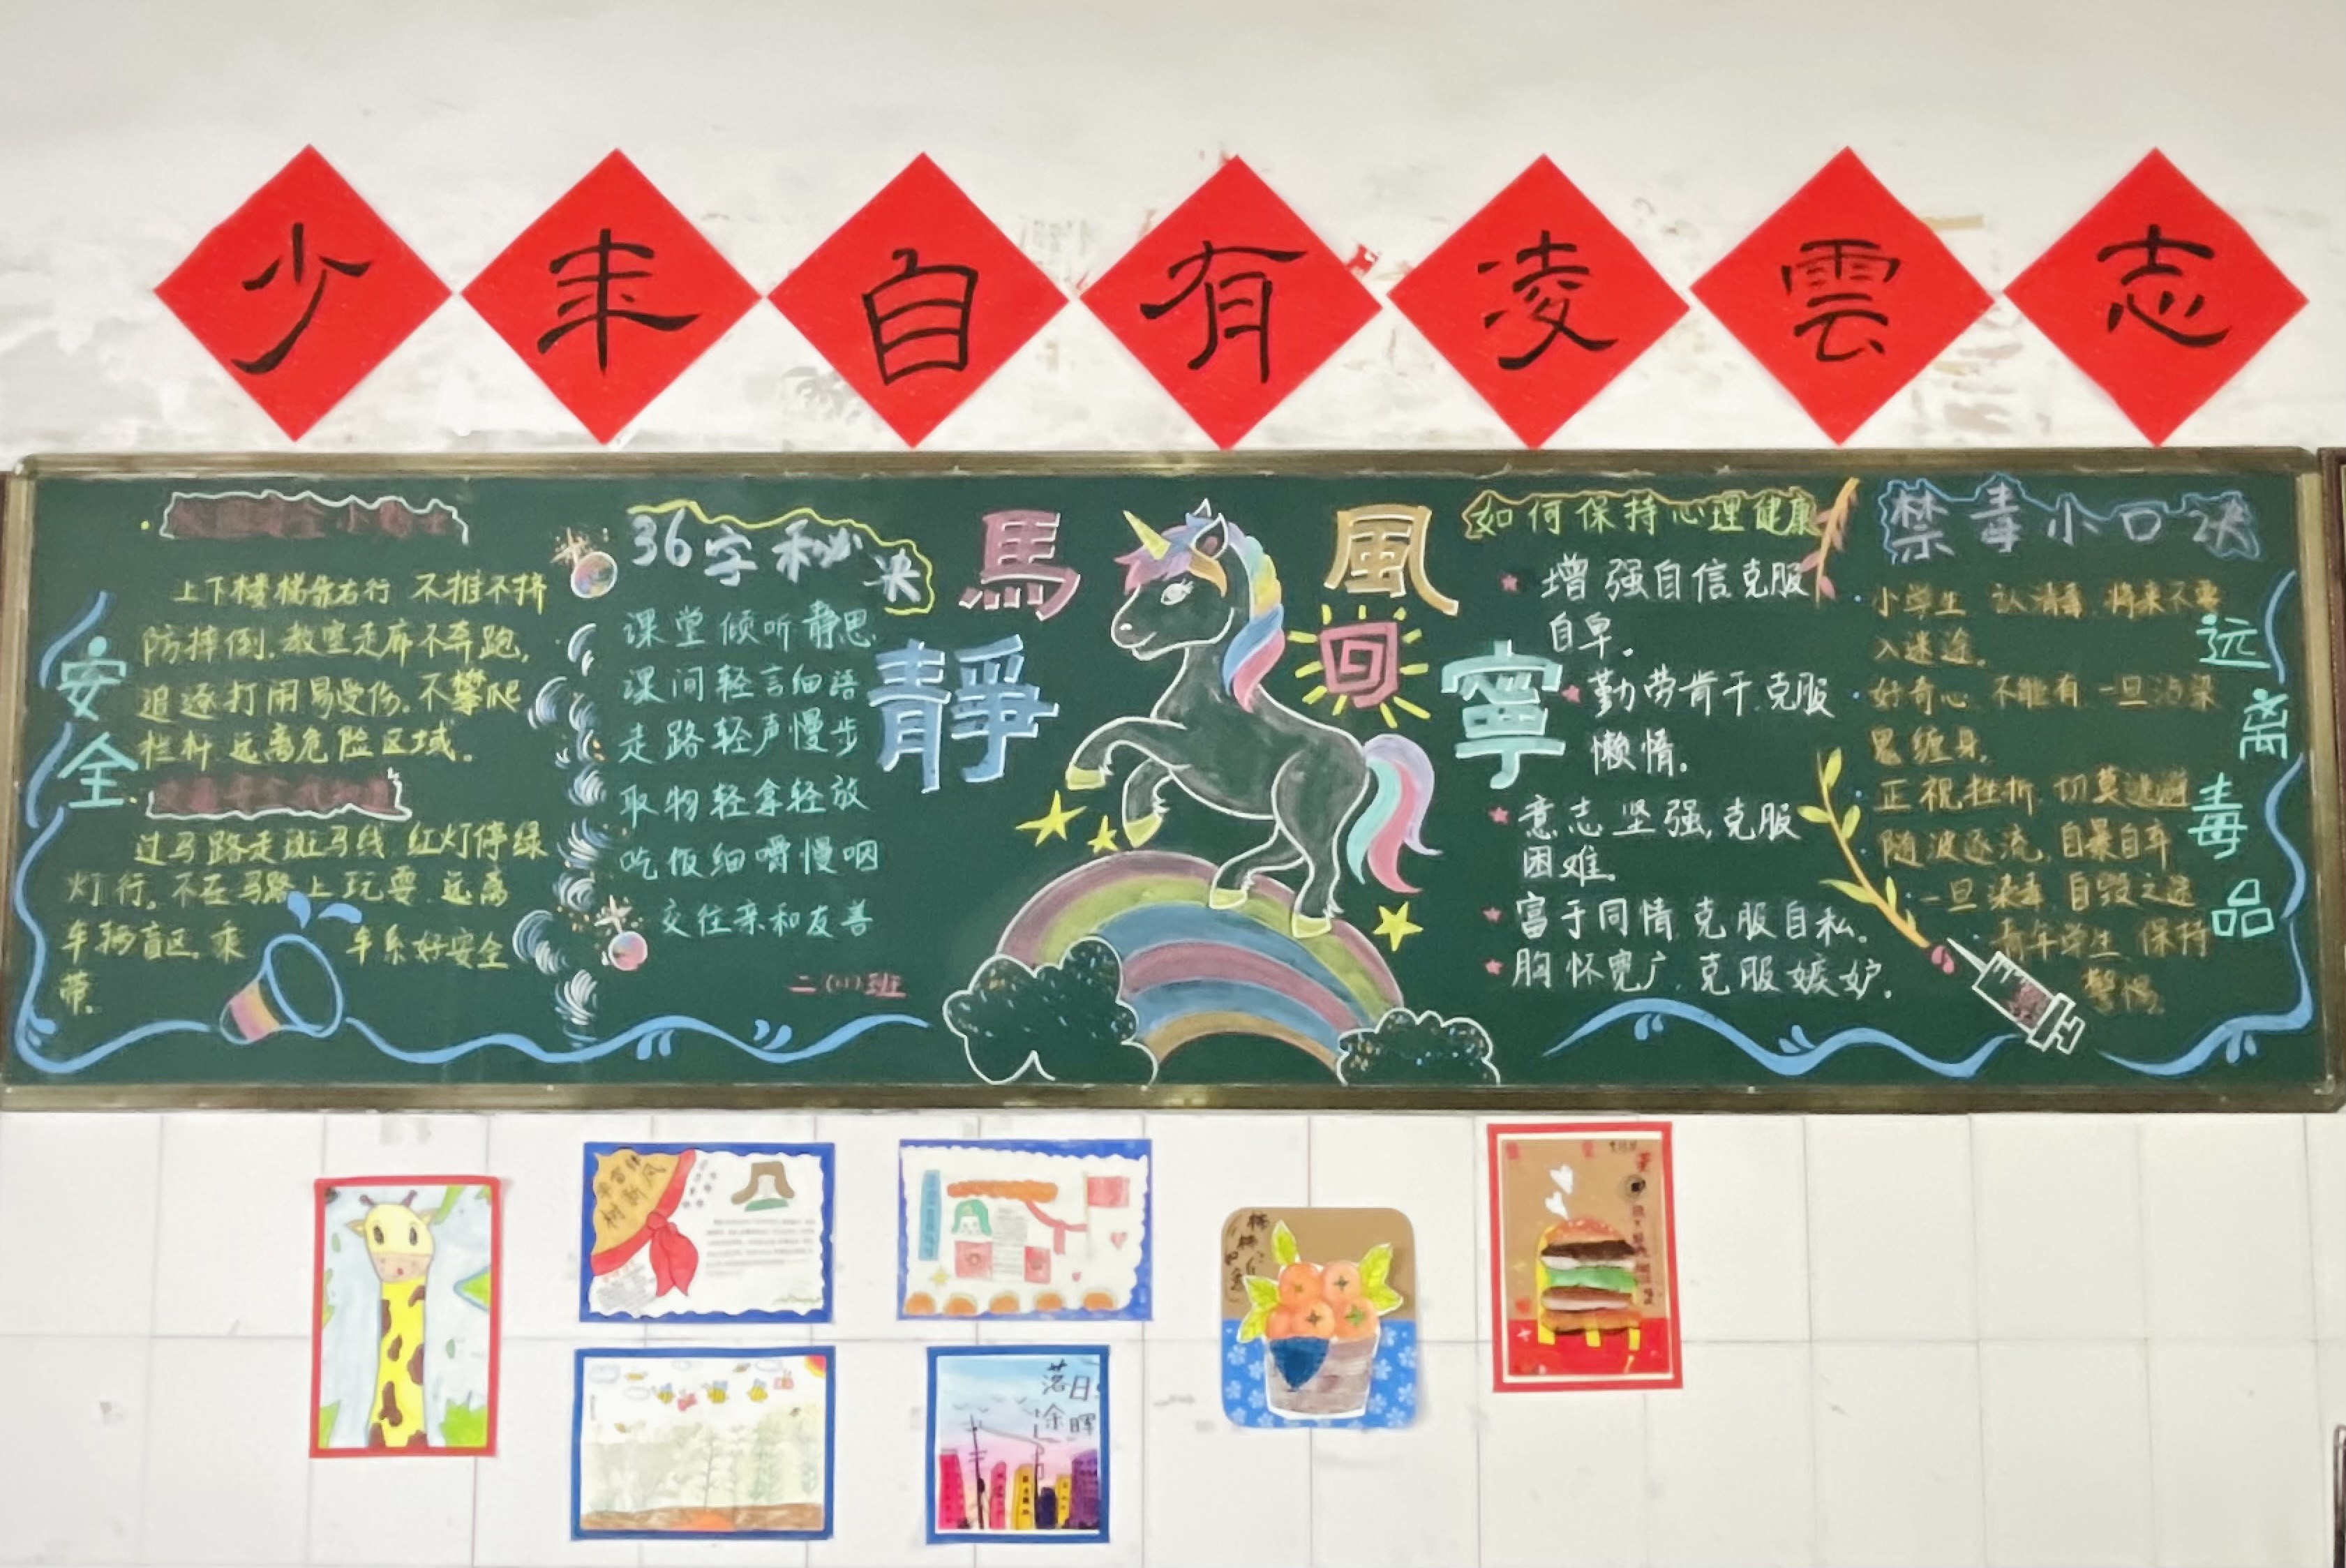 少年自有凌雲志
安全
上下楼梯靠右行 不推不挤
防摔倒。教室走廊不奔跑，
追逐打闹易受伤。不攀爬
栏杆 远离危险区域。
过马路走斑马线 红灯停绿
灯行。不在马路上玩耍 远离
车辆盲区。乘 车系好安全
带。
36字秘决
课堂倾听静思
课间轻言细语
走路轻声慢步
取物轻拿轻放
吃饭细嚼慢咽
交往亲和友善
二(11)班
馬 風
靜 回 寧
如何保持心理健康
增强自信克服
自卑。
勤劳肯干克服
懒惰。
意志坚强，克服
困难。
富于同情 克服自私。
胸怀宽广 克服嫉妒。
禁毒小口决
小学生 认清毒 将来不要
入迷途。
好奇心 不能有 一旦沾染
恶缠身。
正视挫折 切莫逃避
随波逐流 自暴自弃
一旦染毒 自毁之途
青年学生 保持
警惕。
远离毒品
树新风
落日
余晖